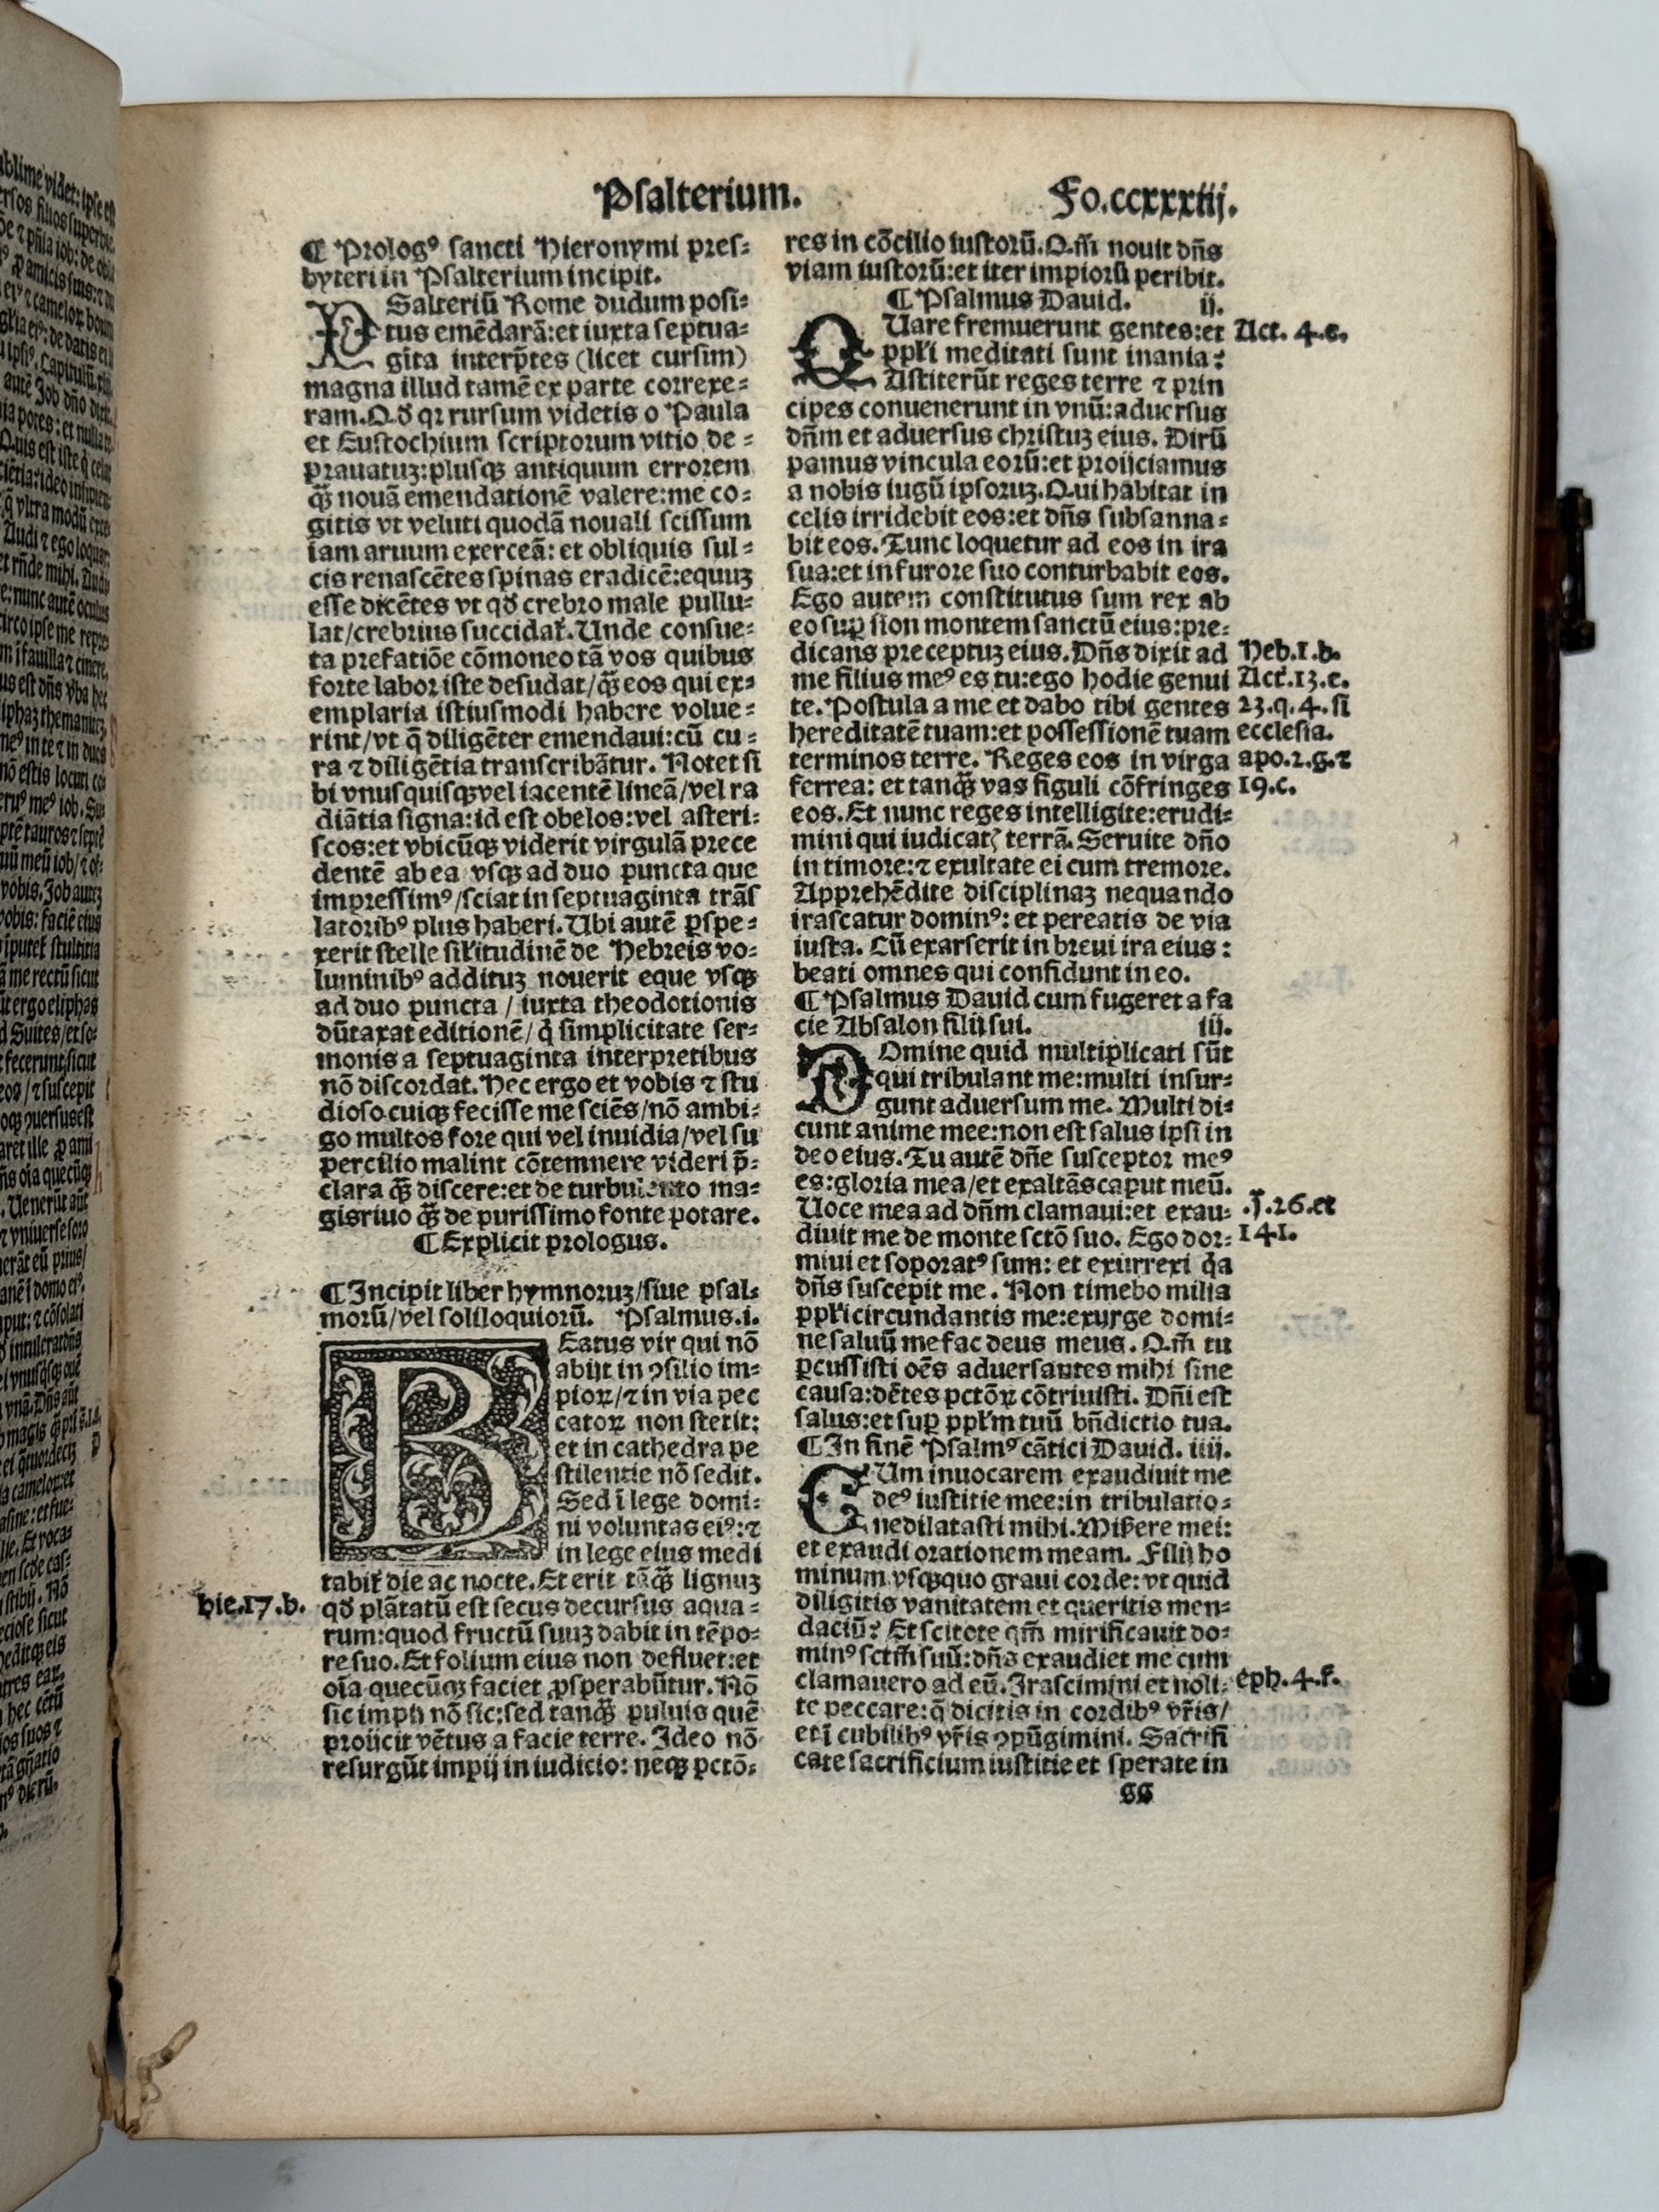 Psalterium.
Fo.ccxxxiij.
¶ Prologꝰ sancti Hieronymi pres⸗
byteri in Psalterium incipit.
PSalteriū Rome dudum posi⸗
tus emēdarā:et iuxta septua⸗
gita interp̄tes (licet cursim)
magna illud tamē ex parte correxe⸗
ram.Qđ qꝛ rursum videtis o Paula
et Eustochium scriptorum vitio de⸗
prauatuꝫ:plusqꝫ antiquum errorem
q̄ꝫ nouā emendationē valere:me co⸗
gitis vt veluti quodā nouali scissum
iam aruum exerceā: et obliquis sul⸗
cis renascētes spinas eradicē:equuꝫ
esse dicētes vt qđ crebro male pullu⸗
lat/crebrius succidat̃.Unde consue⸗
ta prefatiōe cōmoneo tā vos quibus
forte labor iste desudat/q̄ꝫ eos qui ex⸗
emplaria istiusmodi habere volue⸗
rint/vt q̄ diligēter emendaui:cū cu⸗
ra ⁊ diligētia transcribātur. Notet si
bi vnusquisqꝫ vel iacentē lineā/vel ra
diātia signa:id est obelos:vel asteri⸗
scos:et vbicūqꝫ viderit virgulā prece
dentē ab ea vsqꝫ ad duo puncta que
impressimꝰ/sciat in septuaginta trās
latoribꝰ plus haberi.Ubi autē ꝑspe⸗
xerit stelle sił̇itudinē de Hebreis vo⸗
luminibꝰ addituꝫ nouerit eque vsqꝫ
ad duo puncta / iuxta theodotionis
dūtaxat editionē/ q̇ simplicitate ser⸗
monis a septuaginta interpretibus
nō discordat.Hec ergo et vobis ⁊ stu
dioso cuiqꝫ fecisse me sciēs/nō ambi⸗
go multos fore qui vel inuidia/vel su
percilio malint cōtemnere videri p̄⸗
clara q̄ꝫ discere:et de turbulento ma⸗
gis riuo q̄ꝫ de purissimo fonte potare.
¶ Explicit prologus.
¶ Incipit liber hymnoruꝫ/siue psal⸗
morū/vel soliloquiorū. Psalmus.i.
BEatus vir qui nō
abijt in ꝯsilio im⸗
pioꝝ/⁊ in via pec
catoꝝ non stetit:
et in cathedra pe
stilentie nō sedit.
Sed ī lege domi⸗
ni voluntas eiꝰ:⁊
in lege eius medi
tabit̃ die ac nocte.Et erit tāq̄ꝫ lignuꝫ
hie.17.b.
qđ plātatū est secus decursus aqua⸗
rum:quod fructū suuꝫ dabit in tēpo⸗
re suo.Et folium eius non defluet:et
oīa quecūqꝫ faciet ꝓsperabūtur. Nō
sic impij nō sic:sed tanq̄ꝫ puluis quē
proijcit vētus a facie terre. Ideo nō
resurgūt impij in iudicio: neqꝫ pctō⸗
res in cōcilio iustorū.Qm̄ nouit dn̄s
viam iustorū:et iter impiorū peribit.
¶ Psalmus Dauid. ij.
QUare fremuerunt gentes:et
Act. 4.e.
pp̄ł̇i meditati sunt inania?
Astiterūt reges terre ⁊ prin
cipes conuenerunt in vnū:aduersus
dn̄m et aduersus christuꝫ eius. Dirū
pamus vincula eorū:et proijciamus
a nobis iugū ipsoruꝫ.Qui habitat in
celis irridebit eos:et dn̄s subsanna⸗
bit eos.Tunc loquetur ad eos in ira
sua:et in furore suo conturbabit eos.
Ego autem constitutus sum rex ab
eo suꝑ sion montem sanctū eius:pre⸗
dicans preceptuꝫ eius.Dn̄s dixit ad
Heb.1.b.
me filius meꝰ es tu:ego hodie genui
Act.13.e.
te.Postula a me et dabo tibi gentes
23.q.4.si
hereditatē tuam:et possessionē tuam
ecclesia.
terminos terre. Reges eos in virga
apo.2.g.⁊
ferrea: et tanq̄ꝫ vas figuli cōfringes
19.c.
eos.Et nunc reges intelligite:erudi⸗
mini qui iudicatꝭ terrā.Seruite dn̄o
in timore:⁊ exultate ei cum tremore.
Apprehēdite disciplinaꝫ nequando
irascatur dominꝰ: et pereatis de via
iusta. Cū exarserit in breui ira eius :
beati omnes qui confidunt in eo.
¶ Psalmus Dauid cum fugeret a fa
cie Absalon filij sui. iij.
DOmine quid multiplicati sūt
qui tribulant me:multi insur⸗
gunt aduersum me. Multi di⸗
cunt anime mee:non est salus ipsi in
deo eius.Tu autē dn̄e susceptor meꝰ
es:gloria mea/et exaltās caput meū.
Uoce mea ad dn̄m clamaui:et exau⸗
.j.26.et
diuit me de monte sctō suo. Ego dor⸗
141.
miui et soporatꝰ sum: et exurrexi q̇a
dn̄s suscepit me . Non timebo milia
pp̄ł̇i circundantis me:exurge domi⸗
ne saluū me fac deus meus. Qm̄ tu
ꝑcussisti oēs aduersantes mihi sine
causa:dētes pctōꝝ cōtriuisti. Dn̄i est
salus:et suꝑ pp̄ł̇m tuū bn̄dictio tua.
¶ In finē Psalmꝰ cātici Dauid. iiij.
CUm inuocarem exaudiuit me
deꝰ iustitie mee:in tribulatio⸗
ne dilatasti mihi.Miẜere mei:
et exaudi orationem meam. Filij ho
minum vsqꝫquo graui corde: vt quid
diligitis vanitatem et queritis men⸗
daciū? Et scitote qm̄ mirificauit do⸗
minꝰ sctm̄ suū:dn̄s exaudiet me cum
clamauero ad eū.Irascimini et noli⸗
eph.4.f.
te peccare:q̄ dicitis in cordibꝰ vr̄is/
et ī cubilibꝰ vr̄is ꝯpūgimini. Sacrifi
cate sacrificium iustitie et sperate in
GG